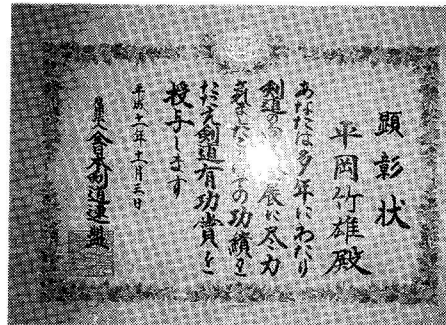 顕彰状
平岡竹雄殿
あなたは多年にわたり
剣道の発展に尽力
されたその功績を
たたえ剣道有功賞を
授与します
平成十一年十一月三日
全日本剣道連盟